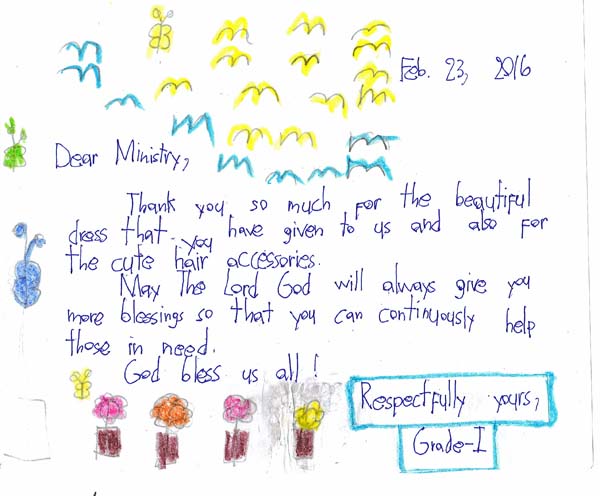 Feb. 23, 2016
Dear Ministry,
Thank you so much for the beautiful
dress that you have given to us and also for
the cute hair accessories.
May The Lord God will always give you
more blessings so that you can continuously help
those in need.
God bless us all!
Respectfully yours,
Grade-I